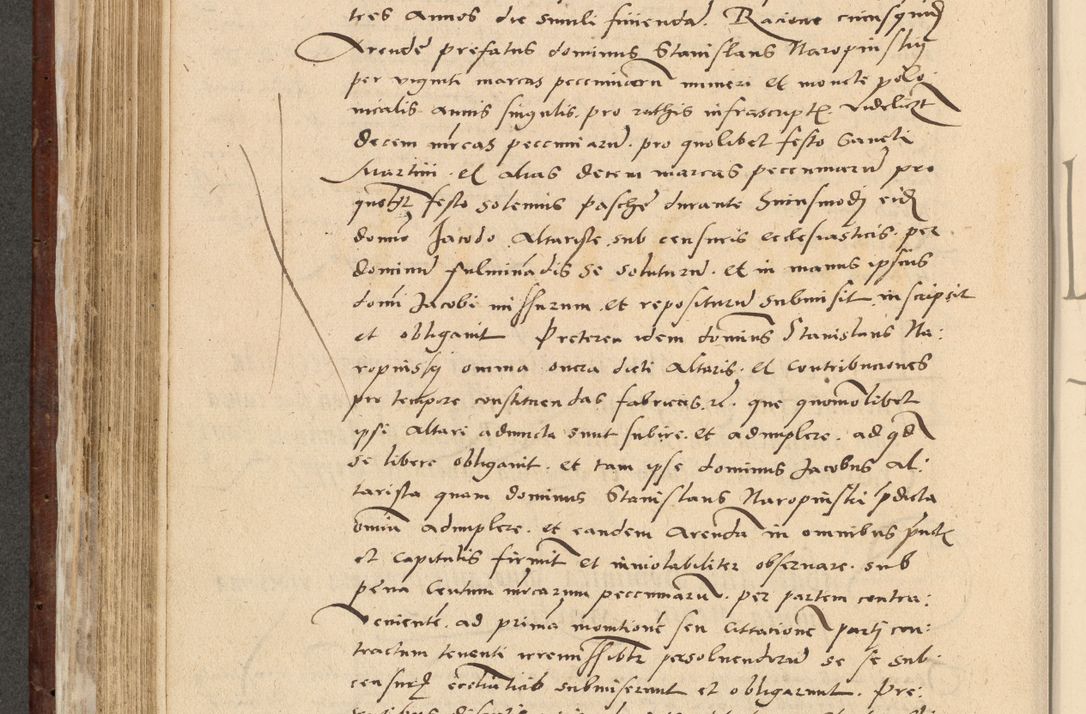 tres annos die simili finienda. Racione cuiusquid
Arende prefatus dominus Stanislaus Naropinskij
per viginti marcas pecuniarum numeri et monete polo
nicalis annis singulis, pro rathis infrascript. videlicet
decem mrcas pecuniaru. pro quolibet festo Sancti
Martini. et alias decem marcas pecuniaru pro
quolibet festo solemnis Pasche durante huiusmodi eid
domino Jacobo Altariste sub censuris ecclesiasticis per
dominu fulminadis se soluturu. et in manus ipsius
domi Jacobi missurum et repositurum submisit, inscripsit
et obligauit Preterea idem dominus Stanislaus Na:
ropinskj omnia onera dicti Altaris. et contribuciones
pro tempore constituendas fabricas. que quomolibet
ipsi Altari adiuncta sunt subire. et adimplere. ad qd
se libere obligauit. et tam ipse dominus Jacobus Al:
tarista quam dominus Stanislaus Naropinski pdicta
omnia adimplere. et eandem Arenda in omnibus punct
et capitulis firmit et inuiolabiliter obseruare. sub
pena Centum mrcarum pecuniaru. per partem contra:
veniente. ad prima monitione seu Cittacione parti con:
tractum tenenti irremissibiliter persoluendaru se se sub
censuris ecclesiasticis submiserunt et obligarunt. Pre: